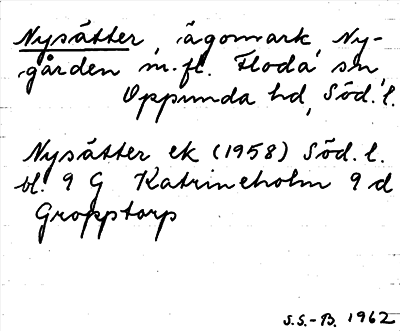 Nysätter, ägomark, Ny-
gården m.fl. Floda sn,
Oppunda hd, Söd. l.
Nysätter ek (1958) Söd. l.
bl. 9 G Katrineholm 9 d
Gropptorp
S.S.-B. 1962